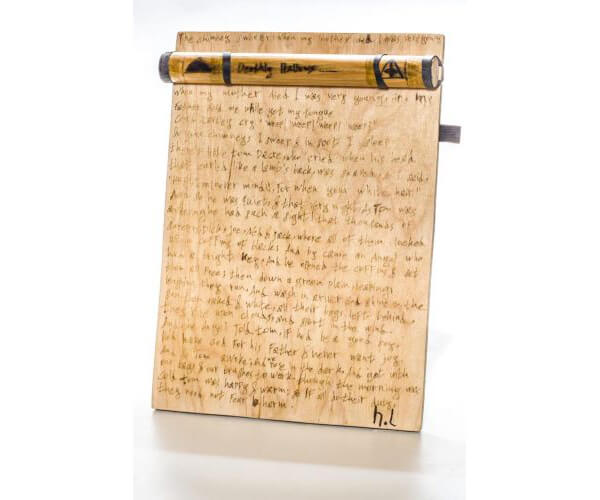 The chimney sweeper when my mother died I was very young
Deathly Hallows
when my mother died I was very young, & my
father sold me while yet my tongue
Could scarcely cry 'weep! 'weep! 'weep! 'weep!
So your chimneys I sweep & in soot I sleep
there's little tom Dacre, who cried when his head
that curled like a lamb's back, was shaved, so I said,
never mind it, for when your white hair"
And so he was quiet, & that very night, As Tom was
a sleeping he had such a sight! that thousands of
sweepers Dick, Joe, Ned, & Jack, where all of them locked
up in coffins of backs And by came an Angel who
had a bright key, And he opened the coffins & set
them all frees then down a green plain, leaping
laughing they run, And wash in a river and shine on the
then naked & white, all their bags left behind,
they rise upon clouds, and sport in the wind.
And the Angel Told tom, if he'd be a good boy,
have God for his Father & never want joy.
And Tom awoke, and we rose in the dark, And got with
our bags & our brushes to work, though the morning was
cold tom was happy & warm. & If all do their duty,
they need not fear harm.
h.l